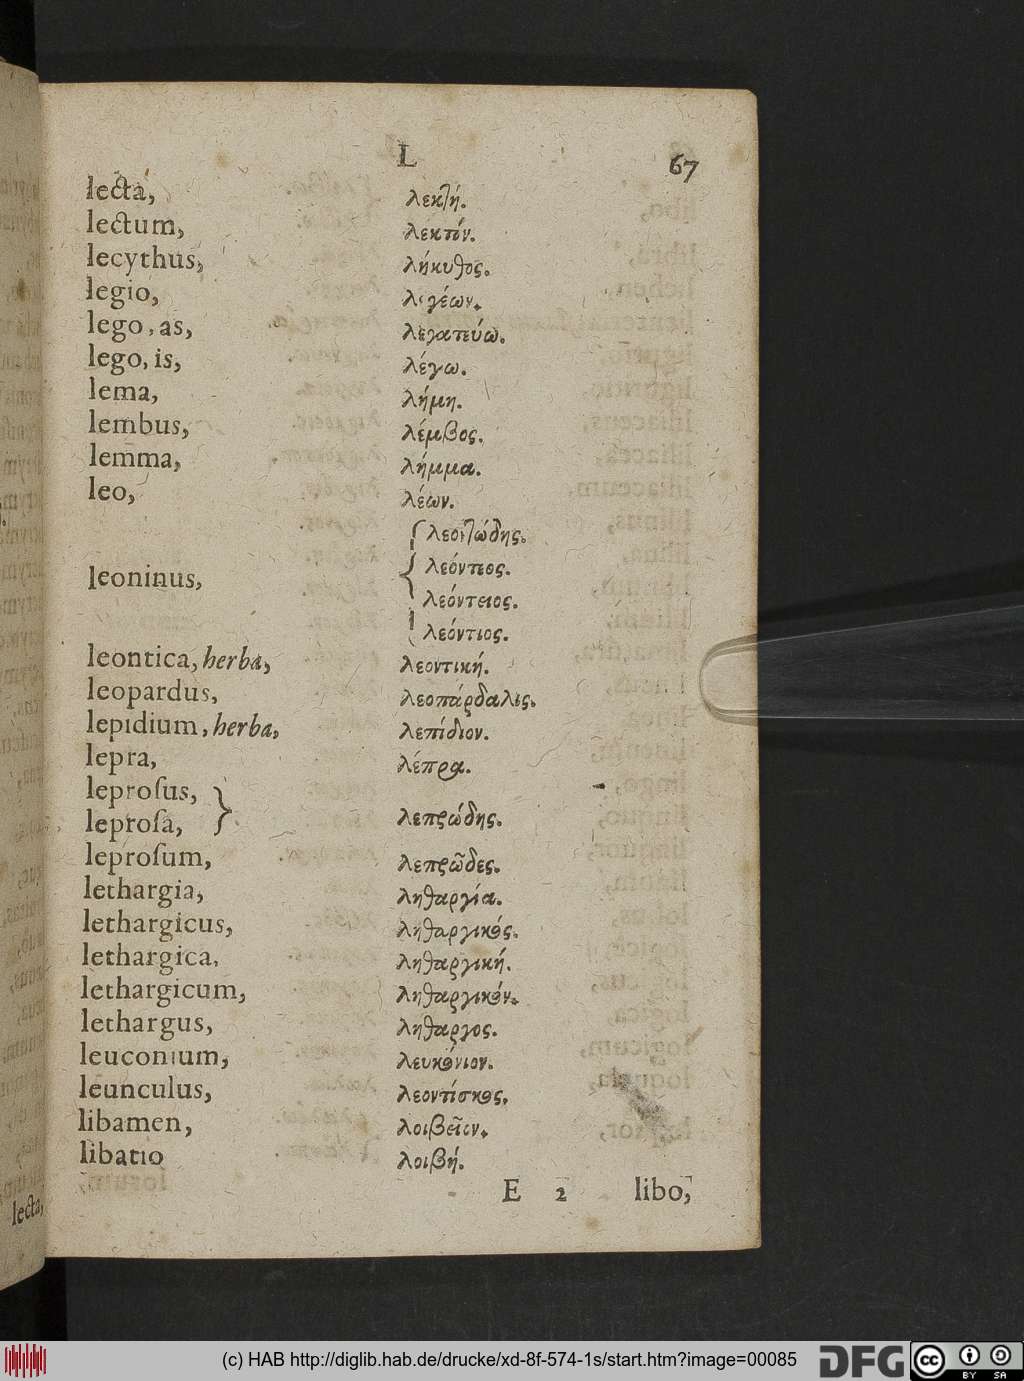 L 67
lecta, λεκτή.
lectum, λεκτόν.
lecythus, λήκυθος.
legio, λεγέων.
lego, as, λεγατεύω.
lego, is, λέγω.
lema, λήμη.
lembus, λέμβος.
lem̄ma, λήμμα.
leo, λέων.
λεοντώδης.
λεόντεος.
leoninus, λεόντειος.
λεόντιος.
leontica, herba, λεοντική.
leopardus, λεοπάρδαλις.
lepidium, herba, λεπίδιον.
lepra, λέπρα.
leproſus,
leproſa, λεπρώδης.
leproſum, λεπρῶδες.
lethargia, ληθαργία.
lethargicus, ληθαργικός.
lethargica, ληθαργική.
lethargicum, ληθαργικόν.
lethargus, ληθαργος.
leuconium, λευκόνιον.
leunculus, λεοντίσκος.
libamen, λοιβεῖον.
libatio λοιβή.
E 2 libo,
lecta,
(c) HAB http://diglib.hab.de/drucke/xd-8f-574-1s/start.htm?image=00085
DFG
cc BY SA